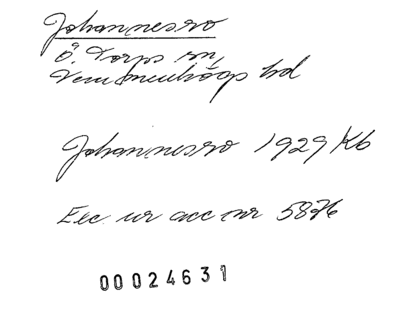 Johannesro
Ö. Torps sn,
Vemmenhögs hd
Johannesro 1929 Kb
Exc. ur acc nr 5876
00024631